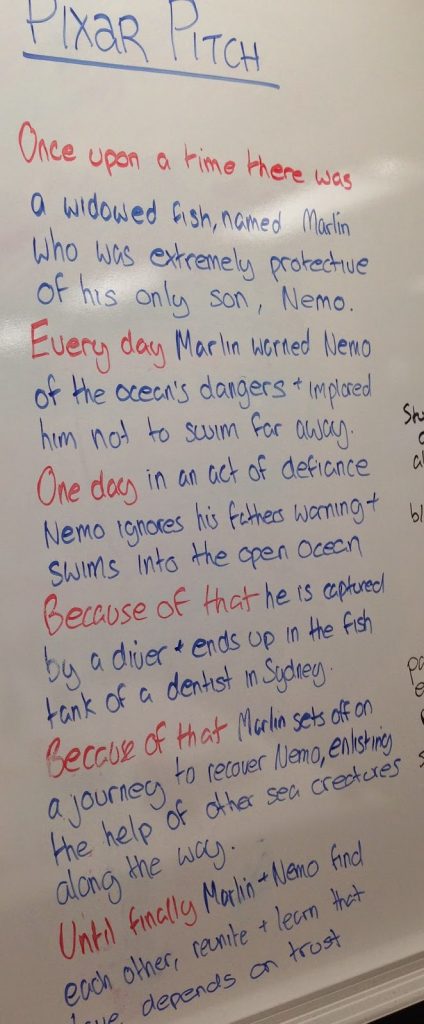 PIXAR PITCH
Once upon a time there was
a widowed fish, named Marlin
who was extremely protective
of his only son, Nemo.
Every day Marlin warned Nemo
of the ocean's dangers + implored
him not to swim far away.
One day in an act of defiance
Nemo ignores his fathers warning +
swims into the open ocean
Because of that he is captured
by a diver + ends up in the fish
tank of a dentist in Sydney.
Becaue of that Marlin sets off on
a journey to recover Nemo, enlisting
the help of other sea creatures
along the way.
Until finally Marlin + Nemo find
each other, reunite + learn that
love depends on trust